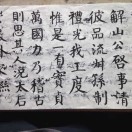 解山公啓事請
彼品流斟孫制
禮光我王度
惟是一有實貞
萬國乃稽古
則思其人況太后